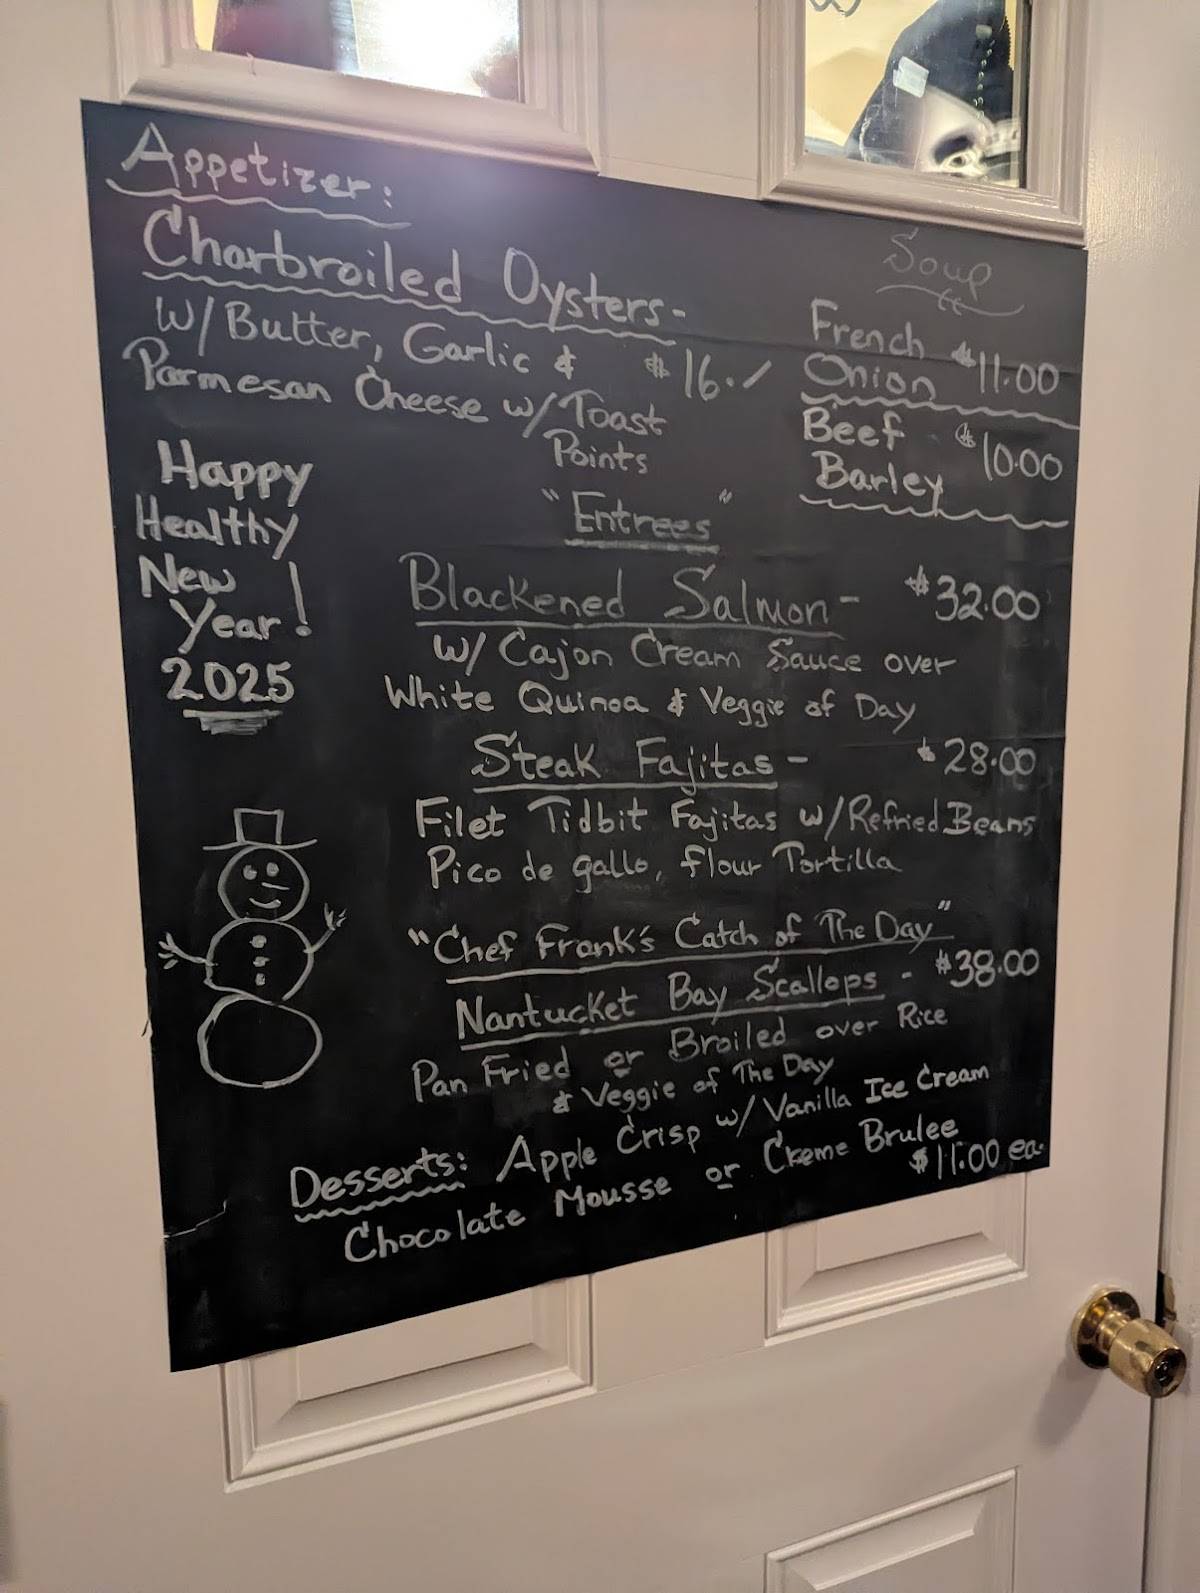 Appetizer:
Charbroiled Oysters-
W/ Butter, Garlic & $16.-
Parmesan Cheese w/ Toast
Points
Soup
French $11.00
Onion
Beef $10.00
Barley
Happy
Healthy
New
Year!
2025
"Entrees"
Blackened Salmon- $32.00
w/ Cajon Cream Sauce over
White Quinoa & Veggie of Day
Steak Fajitas- $28.00
Filet Tidbit Fajitas w/ Refried Beans
Pico de gallo, flour Tortilla
"Chef Frank's Catch of The Day"
Nantucket Bay Scallops - $38.00
Pan Fried or Broiled over Rice
& Veggie of The Day
Desserts: Apple Crisp w/ Vanilla Ice Cream
Chocolate Mousse or Creme Brulee
$11.00 ea.